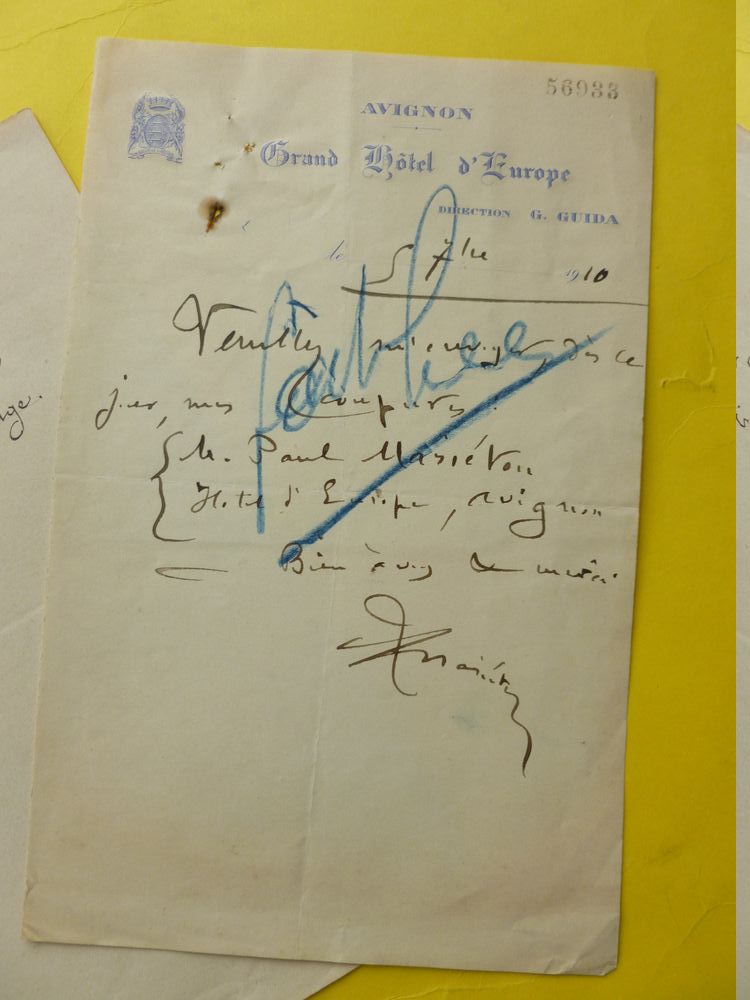 56933
AVIGNON
Grand Hôtel d'Europe
DIRECTION G. GUIDA
le 5 7bre 1910
Veuillez m'envoyer, dès ce
jour, mes Coupures :
M. Paul Mariéton
Hotel d'Europe, Avignon
Bien à vous & merci
Mariéton
ge.